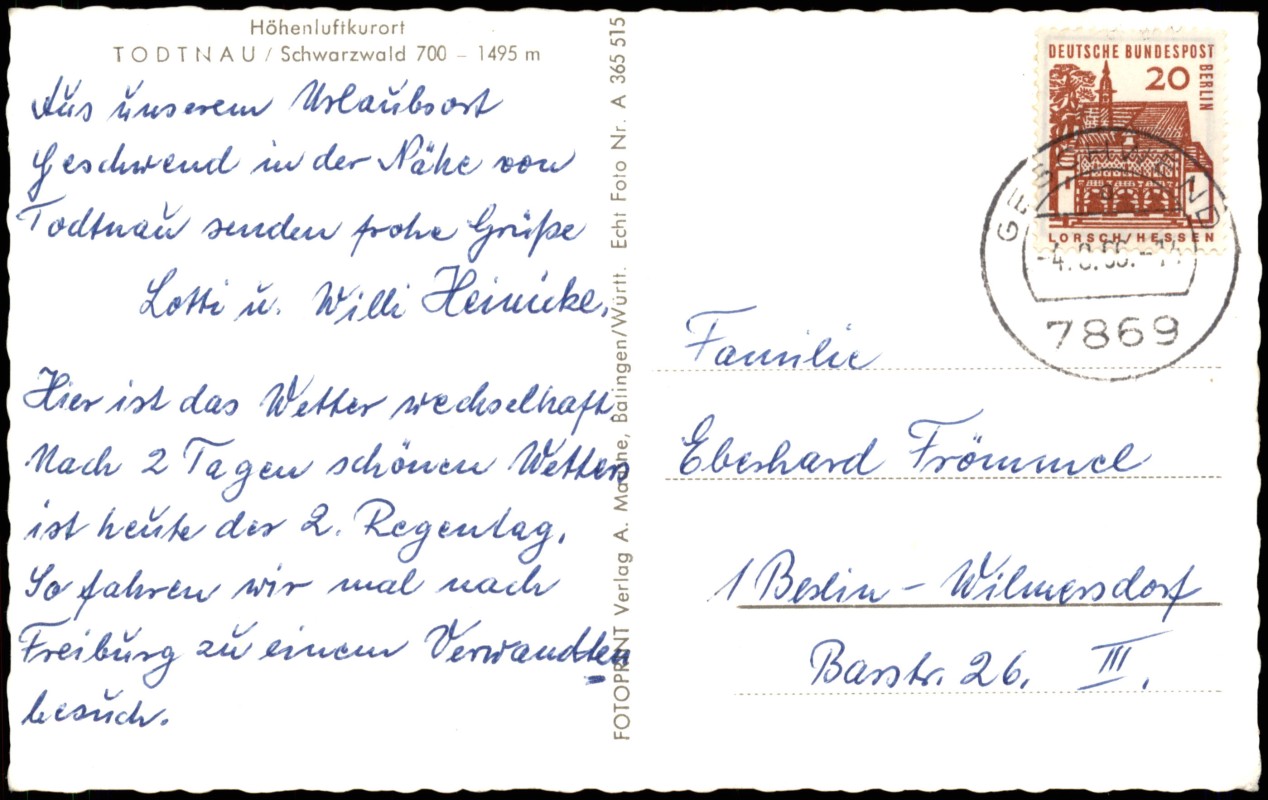 Höhenluftkurort
TODTNAU / Schwarzwald 700 – 1495 m
Aus unserem Urlaubsort
Geschwend in der Nähe von
Todtnau senden frohe Grüße
Lotti u. Willi Heinicke.
Hier ist das Wetter wechselhaft
Nach 2 Tagen schönen Wetters
ist heute der 2. Regentag.
So fahren wir mal nach
Freiburg zu einem Verwandten
besuch.
FOTOPRINT Verlag A. Mauthe, Balingen/Württ. Echt Foto Nr. A 365 515
DEUTSCHE BUNDESPOST
BERLIN
20
LORSCH/HESSEN
GESCHWEND
7869
Familie
Eberhard Frömmel
1 Berlin - Wilmersdorf
Barstr. 26. III.